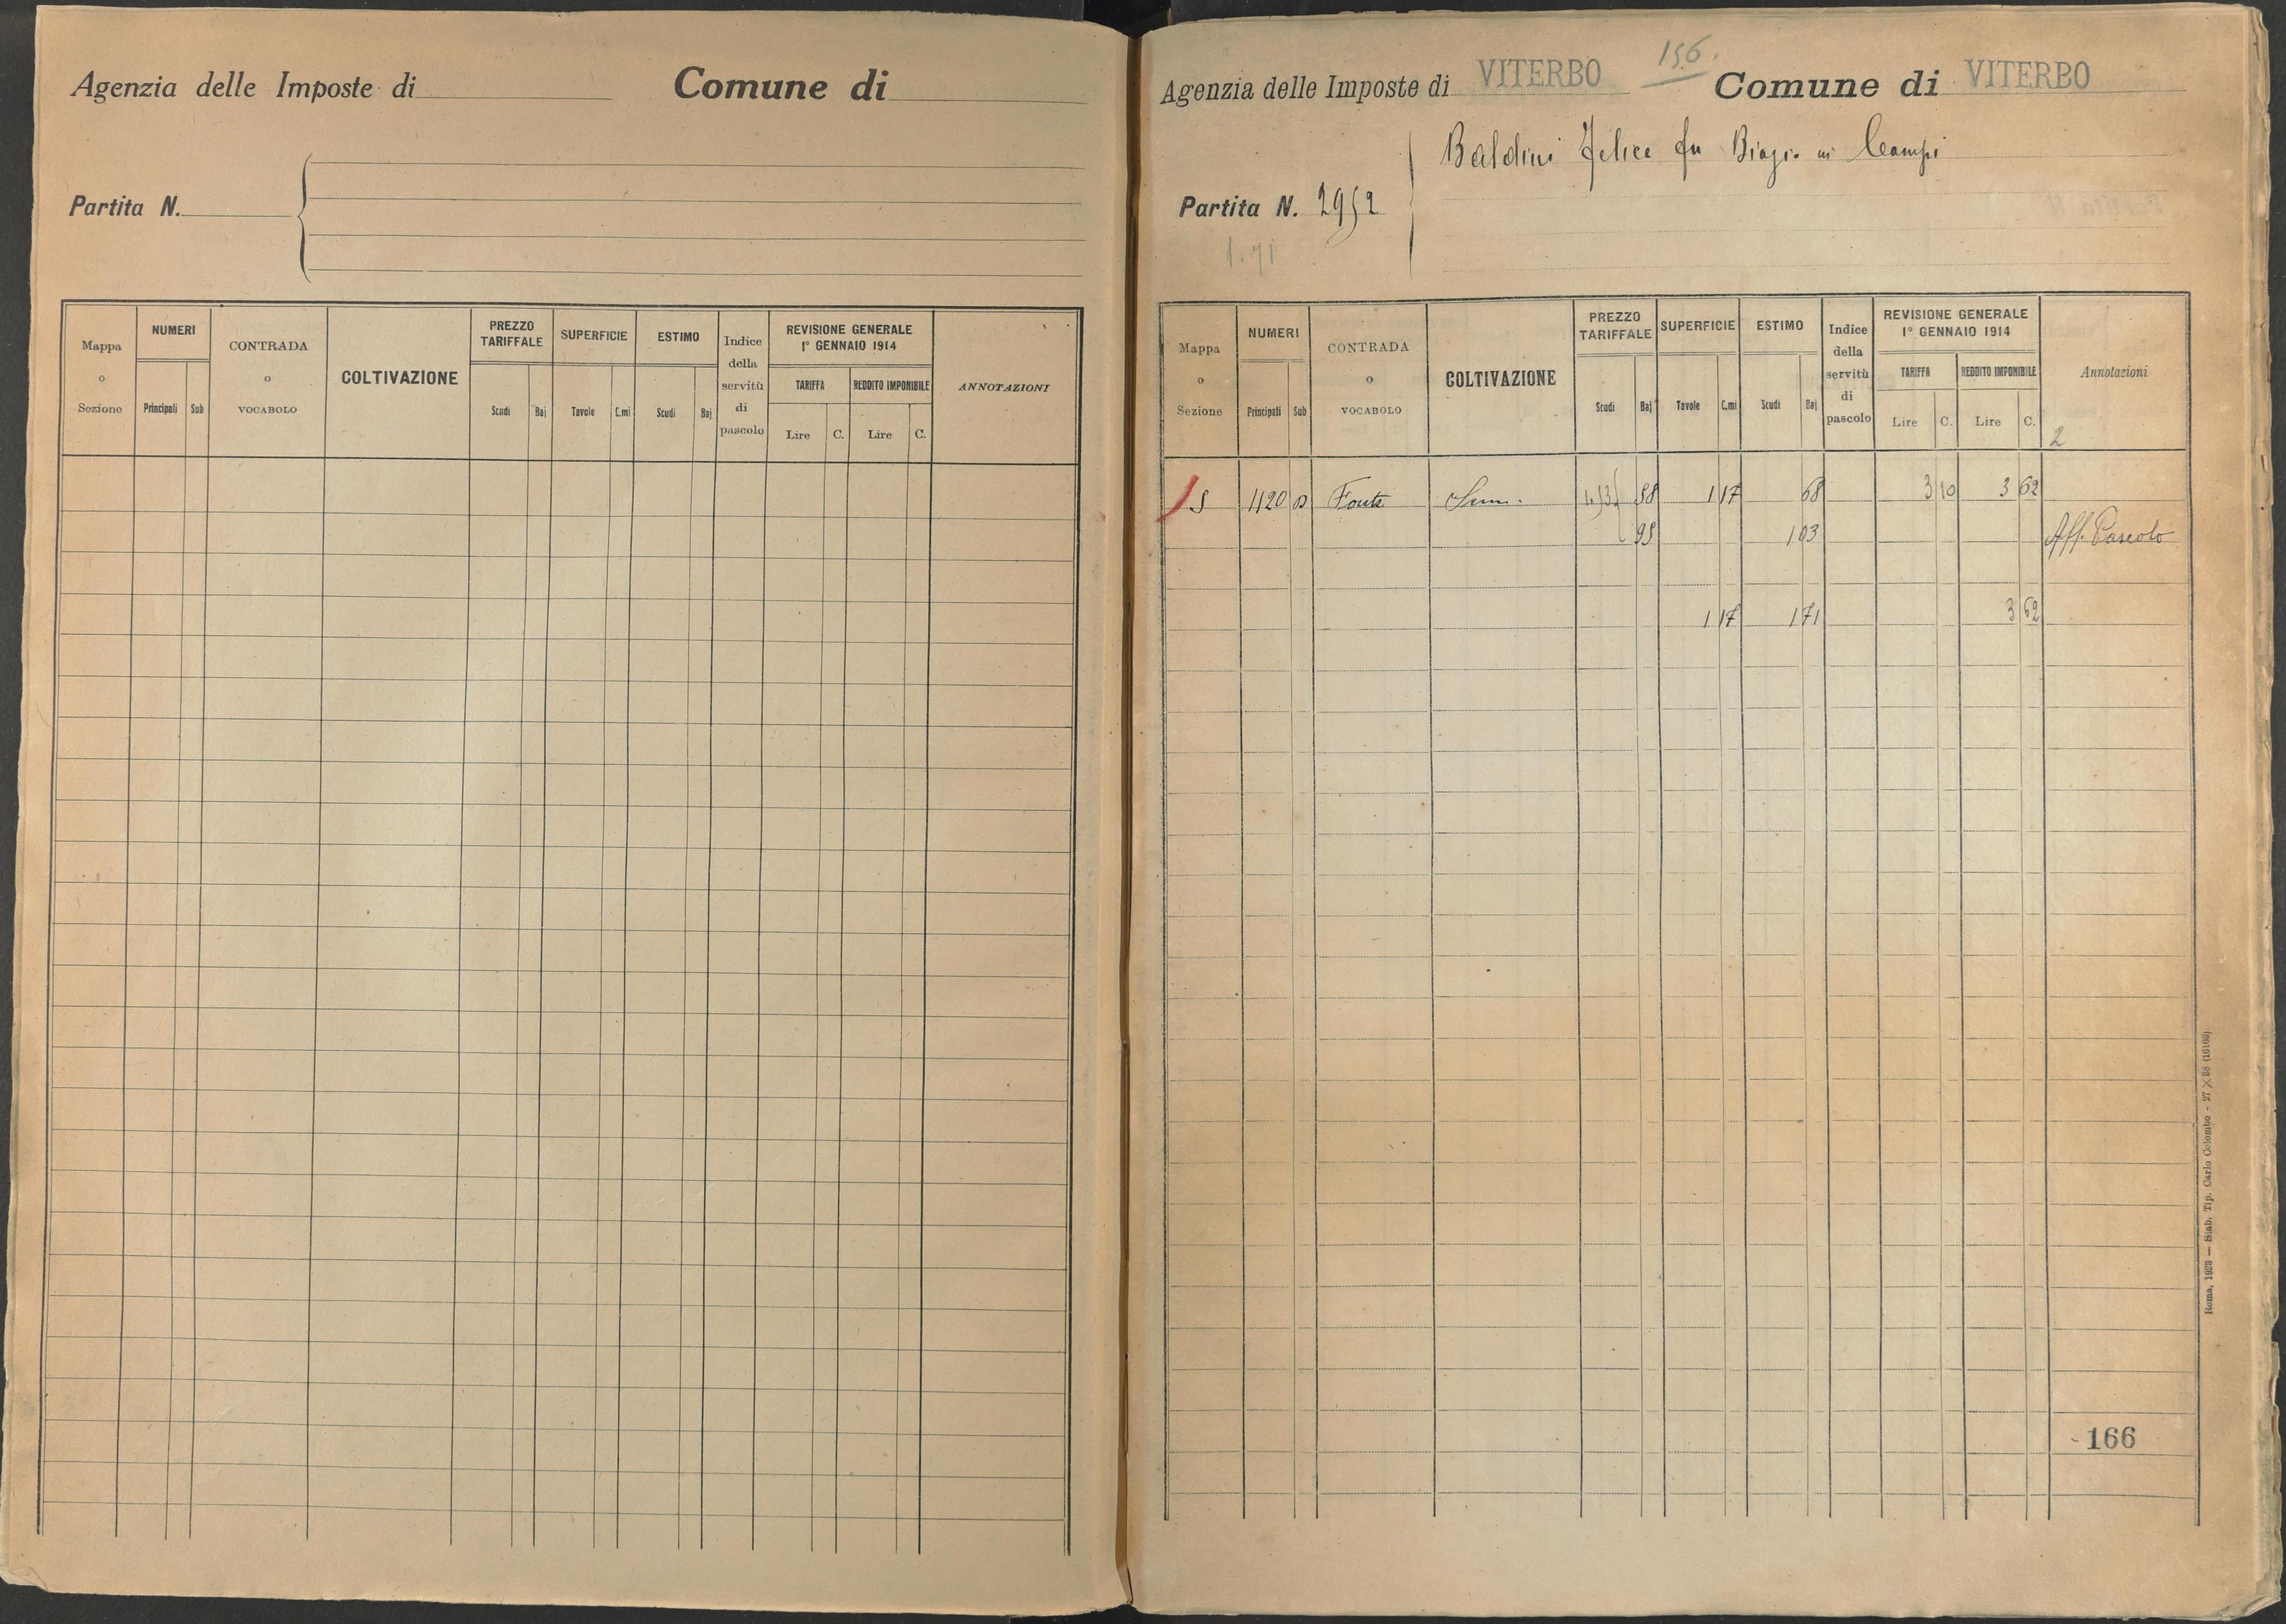 Agenzia delle Imposte di Comune di
Partita N.
Mappa o Sezione NUMERI Principali Sub CONTRADA o VOCABOLO COLTIVAZIONE PREZZO TARIFFALE Scudi Baj SUPERFICIE Tavole C.mi ESTIMO Scudi Baj Indice della servitù di pascolo REVISIONE GENERALE 1° GENNAIO 1914 TARIFFA Lire C. REDDITO IMPONIBILE Lire C. ANNOTAZIONI
156.
Agenzia delle Imposte di VITERBO Comune di VITERBO
Baldini Felice fu Biagio in Campi
Partita N. 2952
1.71
Mappa o Sezione NUMERI Principali Sub CONTRADA o VOCABOLO COLTIVAZIONE PREZZO TARIFFALE Scudi Baj SUPERFICIE Tavole C.mi ESTIMO Scudi Baj Indice della servitù di pascolo REVISIONE GENERALE 1° GENNAIO 1914 TARIFFA Lire C. REDDITO IMPONIBILE Lire C. Annotazioni
2
S 1120 Fonte Sem. 58 1 17 68 3 10 3 62
95 1 03 Aff. Pascolo
1 17 1 71 3 62
166
Roma, 1925 — Stab. Tip. Carlo Colombo - 27 × 38 (10408)